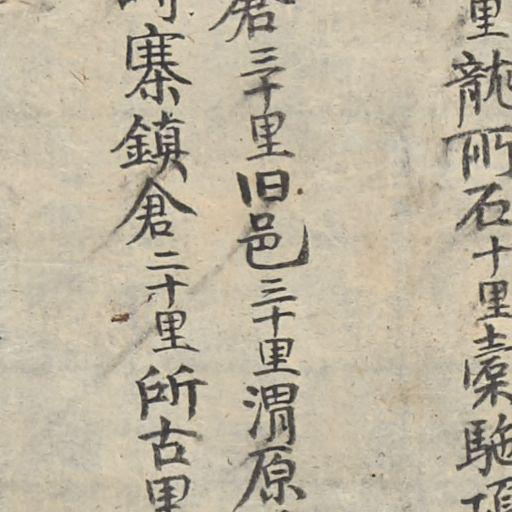 里龍所石十里橐駞項
倉三十里旧邑三十里渭原
寨鎮倉二十里所古里